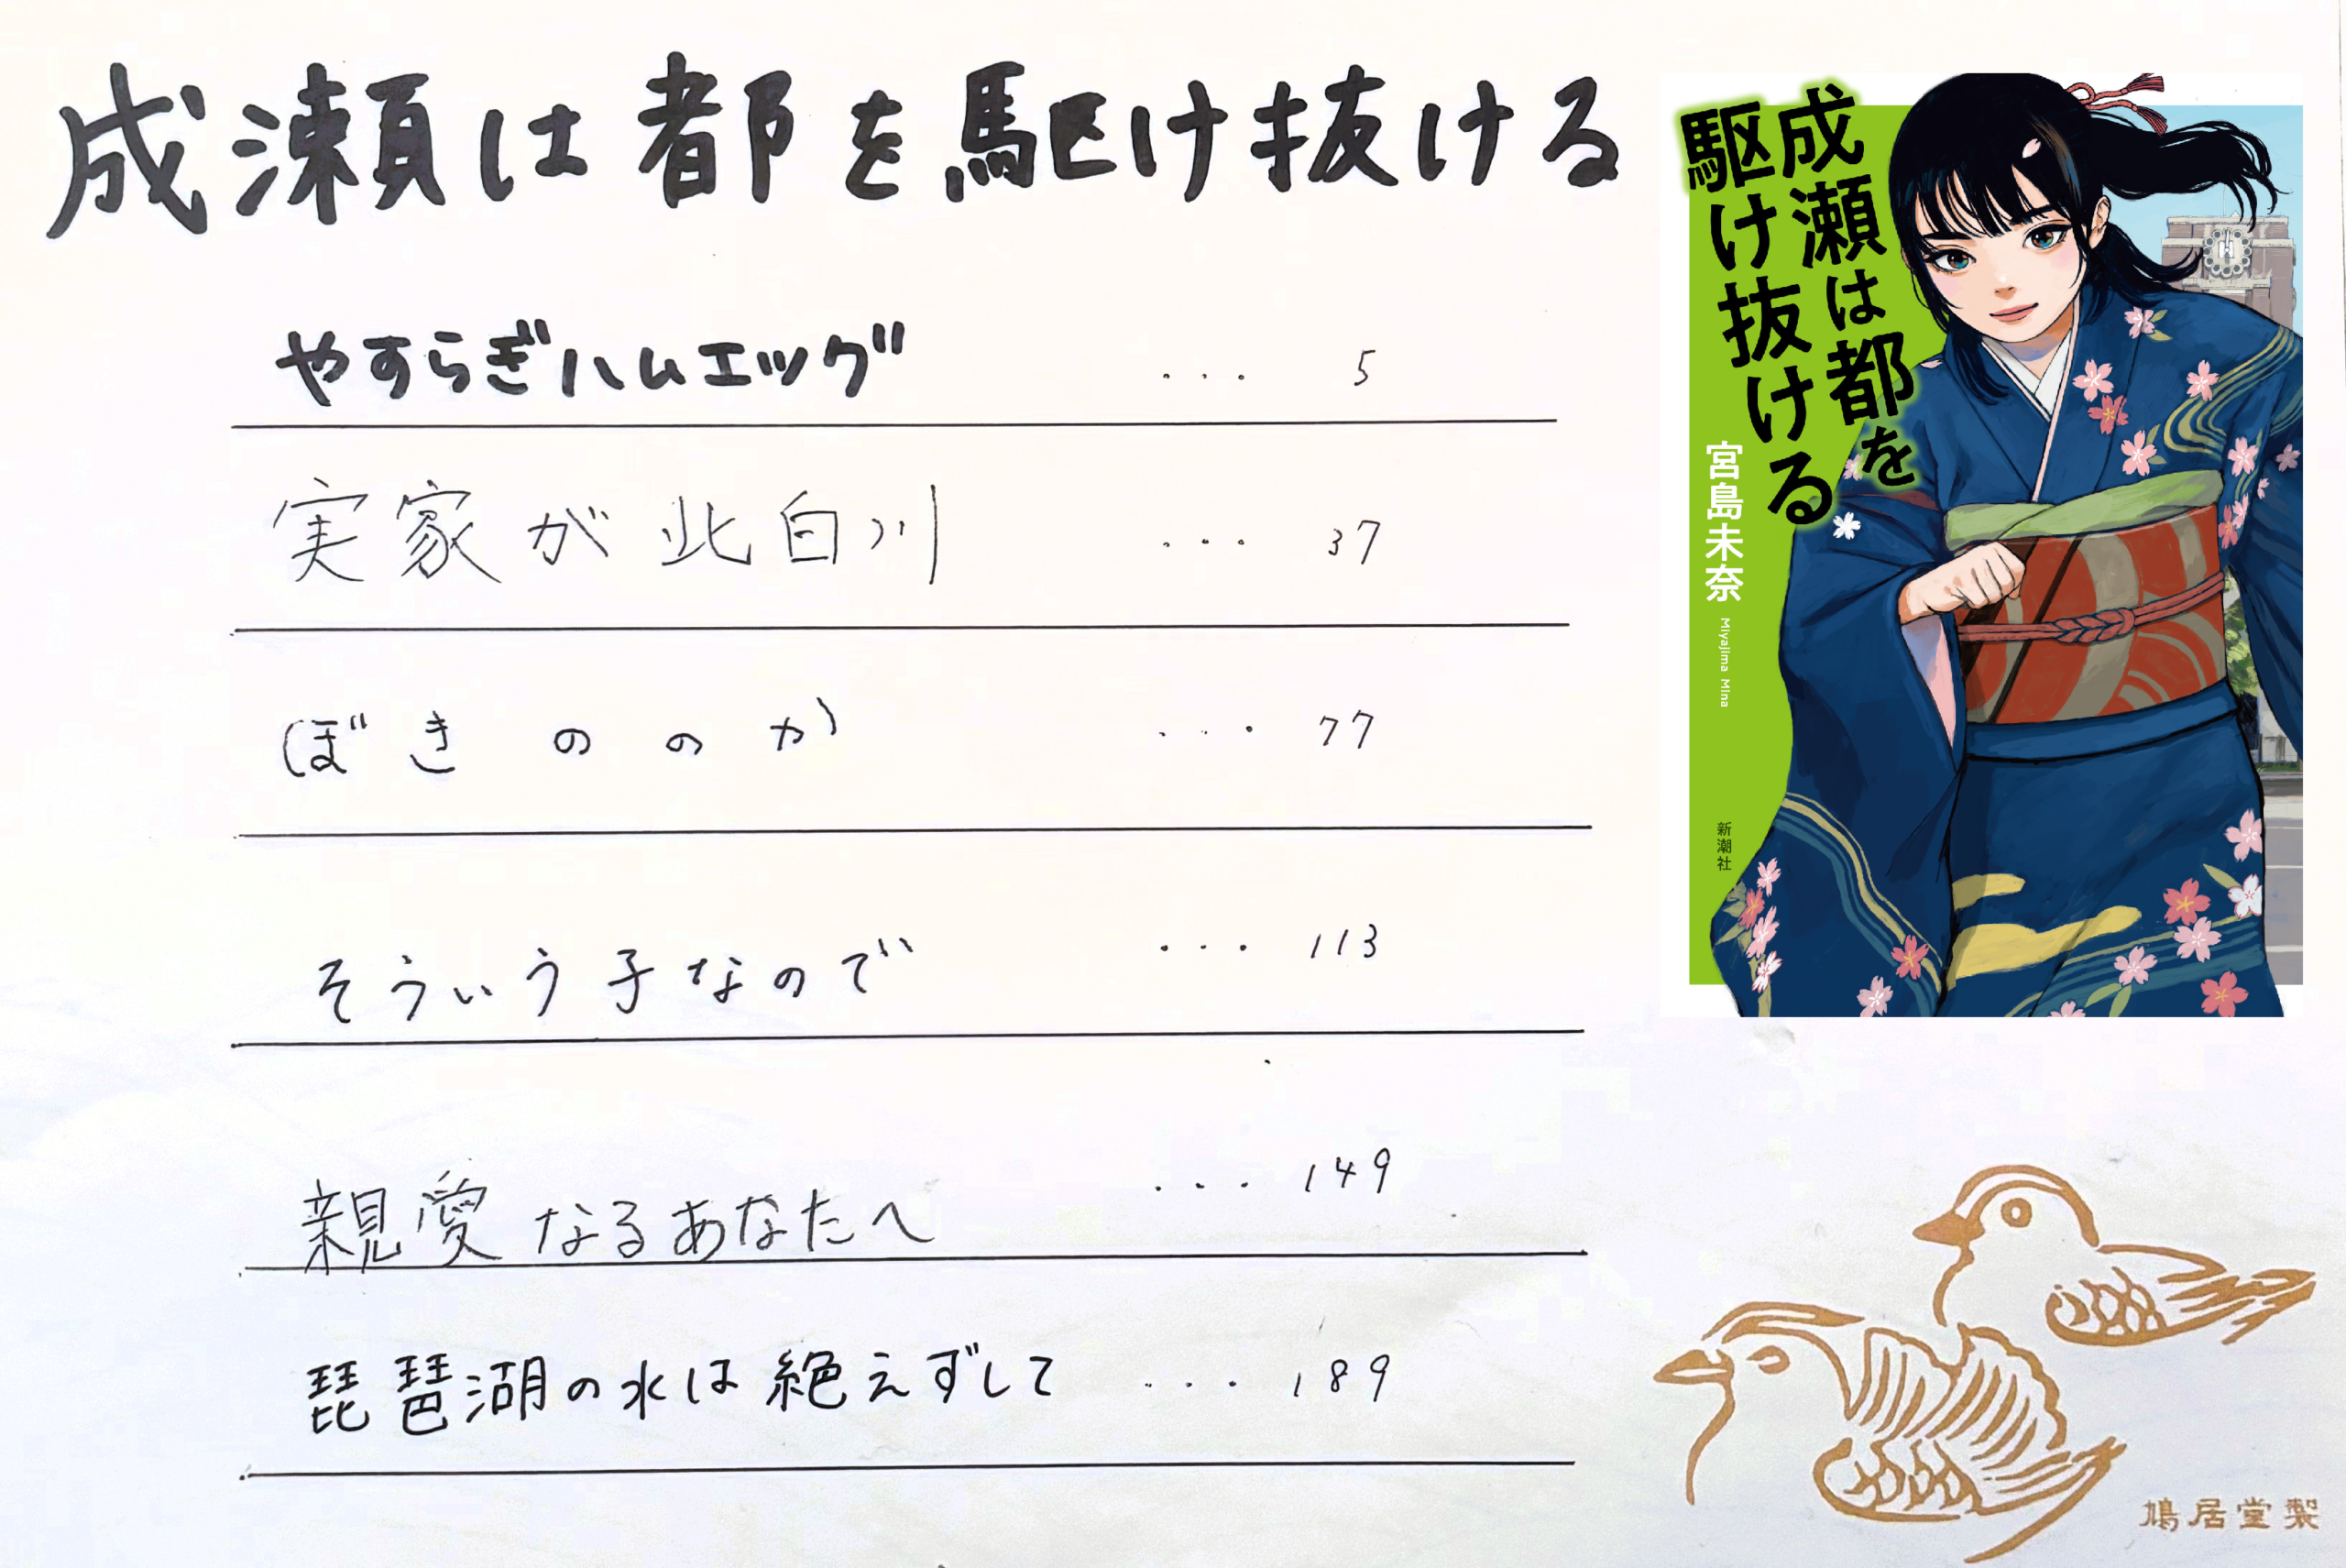 成瀬は都を駆け抜ける
やすらぎハムエッグ ... 5
実家が北白川 ... 37
ぼきののか ... 77
そういう子なので ... 113
親愛なるあなたへ ... 149
琵琶湖の水は絶えずして ... 189
成瀬は都を
駆け抜ける
宮島未奈 Miyajima Mina
新潮社
鳩居堂製